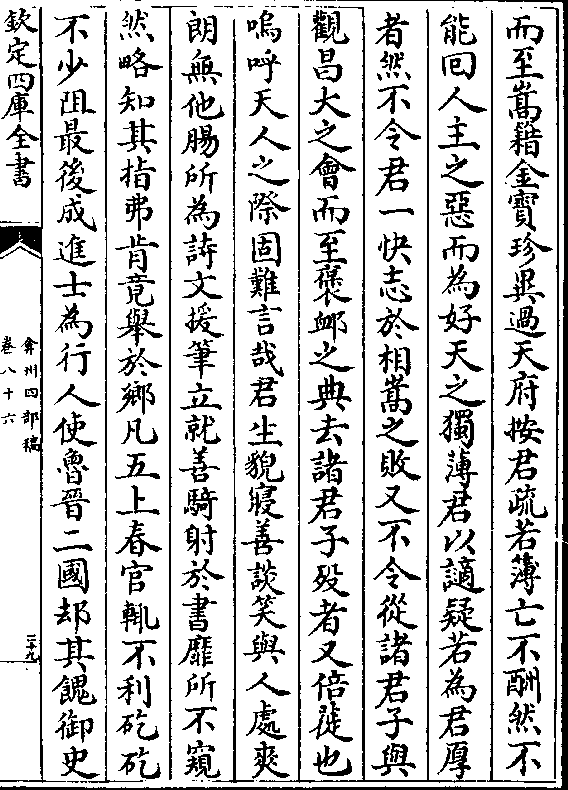 而至嵩籍金寶珍異過天府按君疏若薄亡不酬然不
能回人主之惡而為好天之獨薄君以謫疑若為君厚
者然不令君一快志於相嵩之敗又不令從諸君子與
觀昌大之會而至褒䘏之典去諸君子殁者又倍蓰也
嗚呼天人之際固難言哉君生貌寢善談笑與人處爽
朗無他腸所為詩文援筆立就善騎射於書靡所不窺
然略知其指弗肯竟舉於鄉凡五上春官輒不利矻矻
不少阻最後成進士為行人使魯晉二國却其餽御史
欽定四庫全書
弇州四部稿
卷八十六
二十九